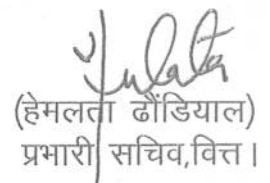 (हेमलता ढौंडियाल)
प्रभारी सचिव,वित्त।